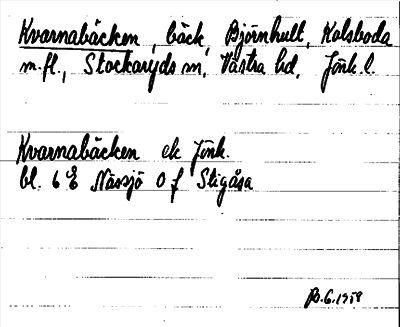 Kvarnabäcken, bäck, Björnhult, Kolsboda
m.fl., Stockaryds sn, Västra hd, Jönk. l.
Kvarnabäcken ek Jönk.
bl. 6 E Nässjö 0 f Stigåsa
1958